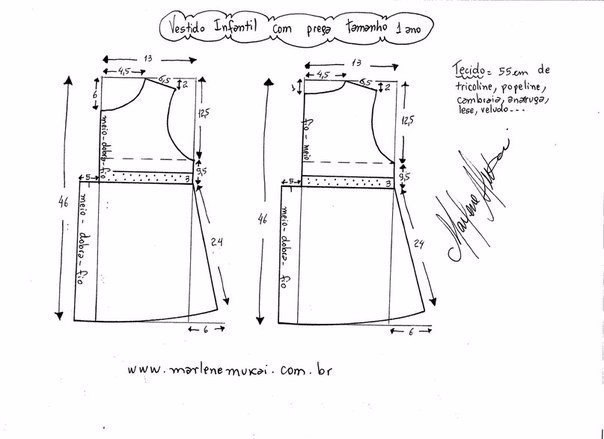 Vestido Infantil com prega tamanho 1 ano
13
4,5
6,5
2
6
12,5
meio-dobra-fio
3,5
5
3
46
meio-dobra-fio
24
6
13
4,5
6,5
2
12,5
fio - meio
3,5
5
3
46
meio-dobra-fio
24
6
Tecido = 55 cm de
tricoline, popeline,
cambraia, anarruga,
lese, veludo...
Marlene Mukai
www.marlenemukai.com.br